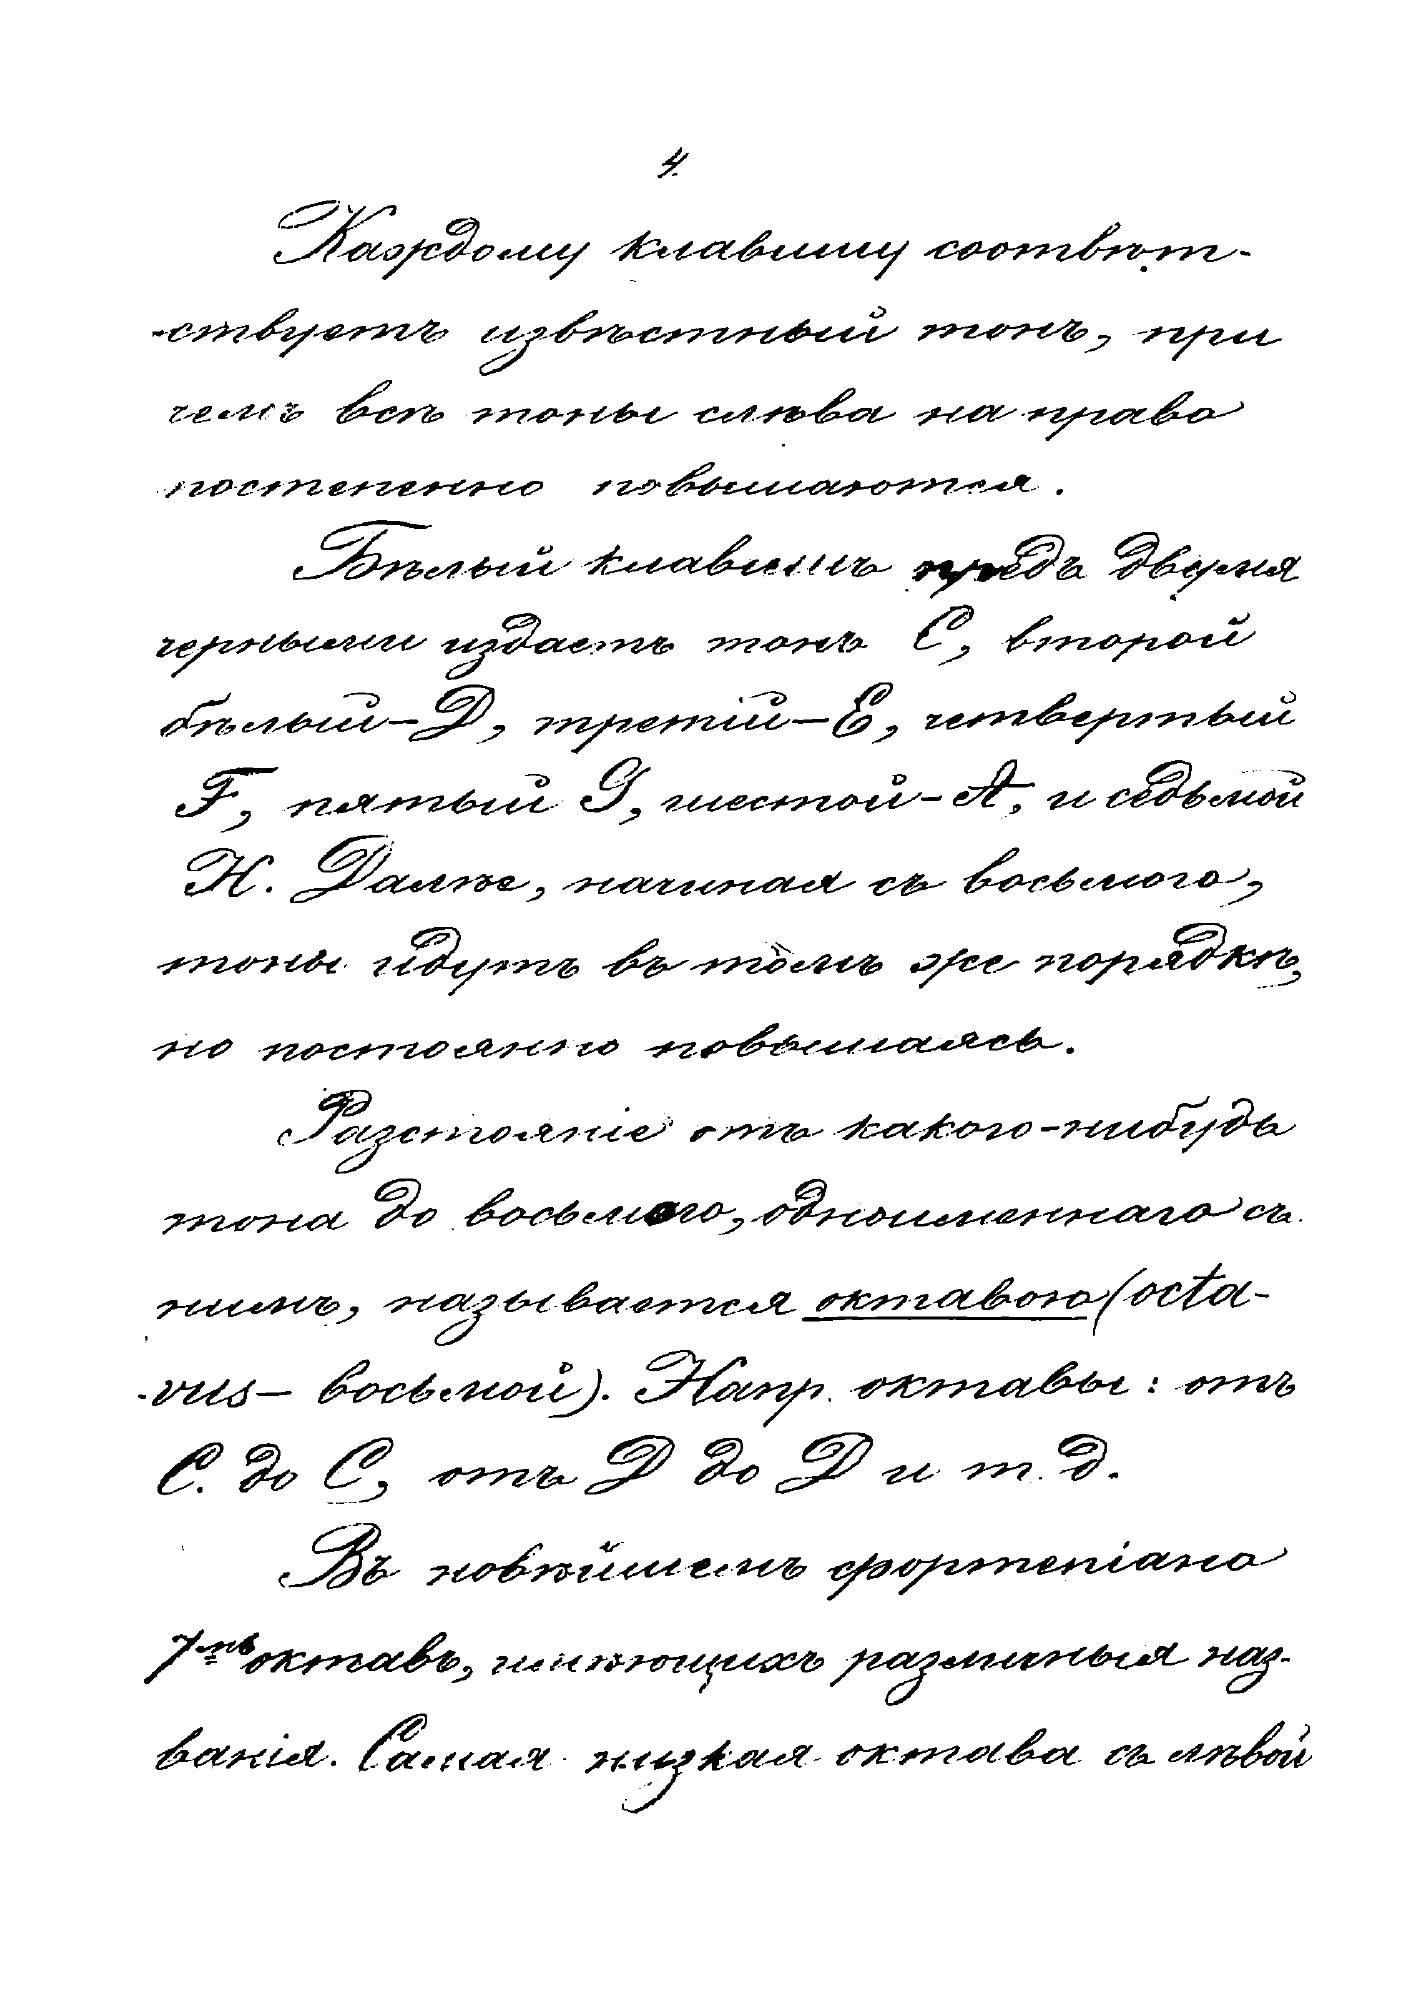 4.
Каждому клавишу соотвѣт-
-ствуетъ извѣстный тонъ, при
чемъ всѣ тоны слѣва на право
постепенно повышаются.
Бѣлый клавишъ предъ двумя
черными издаетъ тонъ C, второй
бѣлый—D, третій—E, четвертый
F, пятый G, шестой-A, и седьмой
H. Далѣе, начиная съ восьмого,
тоны идутъ въ томъ же порядкѣ,
но постоянно повышаясь.
Разстояніе отъ какого-нибудь
тона до восьмого, одноименнаго съ
нимъ, называется октавою (octa-
-vus— восьмой). Напр. октавы: отъ
C. до C, отъ D до D и т. д.
Въ новѣйшемъ фортепіано
7мь октавъ, имѣющихъ различныя наз-
ванія. Самая низкая октава съ лѣвой